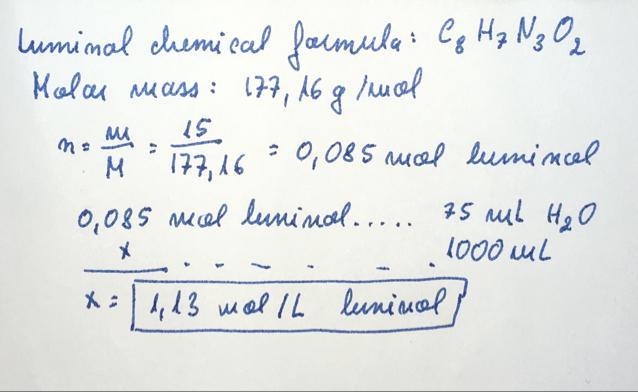 Luminal chemical formula: C8 H7 N3 O2
Molar mass: 177,16 g/mol
n = m/M = 15/177,16 = 0,085 mol luminal
0,085 mol luminal..... 75 mL H2O
x . - - - . 1000 mL
x = 1,13 mol/L luminal